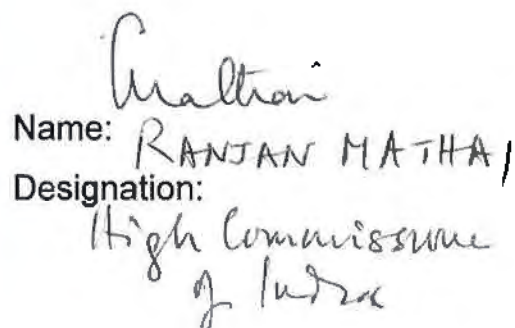 Name: RANJAN MATHAI
Designation:
High Commissioner
of India